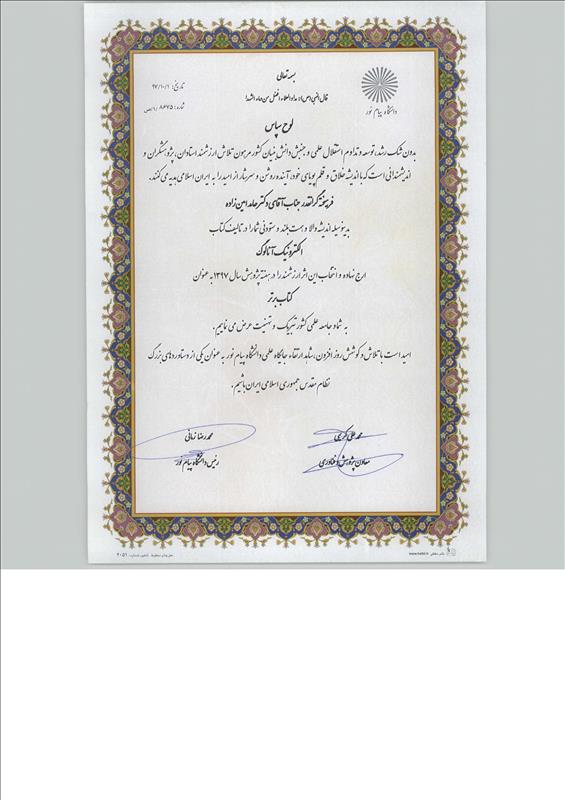 بسمه تعالی
قال النبی(ص): مداد العلماء افضل من دماء الشهداء
دانشگاه پیام نور
تاریخ: ۹۷/۱۰/۱
شماره: ۱/۸۶۷۵/ص
لوح سپاس
بدون شک رشد، توسعه و تداوم استقلال علمی و جنبش دانش بنیان کشور مرهون تلاش ارزشمند استادان، پژوهشگران و
اندیشمندانی است که با اندیشه خلاق و قلم پویای خود، آینده روشن و سرشار از امید را به ایران اسلامی هدیه می کنند.
فرهیخته گرانقدر جناب آقای دکتر حامد امین زاده
بدینوسیله اندیشه والا و همت بلند و ستودنی شما را در تالیف کتاب
الکترونیک آنالوگ
ارج نهاده و انتخاب این اثر ارزشمند را در هفته پژوهش سال ۱۳۹۷ به عنوان
کتاب برتر
به شما و جامعه علمی کشور تبریک و تهنیت عرض می نماییم.
امید است با تلاش و کوشش روز افزون، شاهد ارتقاء جایگاه علمی دانشگاه پیام نور به عنوان یکی از دستاوردهای بزرگ
نظام مقدس جمهوری اسلامی ایران باشیم.
محمد علی کریمی
معاون پژوهش و فناوری
محمدرضا زمانی
رئیس دانشگاه پیام نور